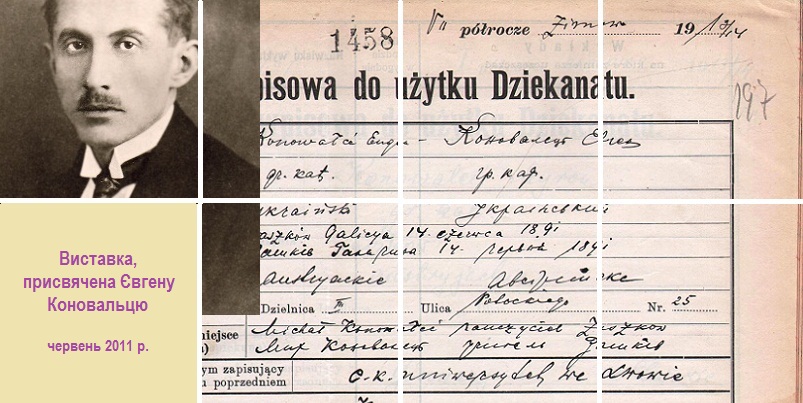 1458
VII półrocze Zimowe 1913/14
197
pisowa do użytku Dziekanatu.
Konowalé Eugen - Коновалець Євген
gr. kat. гр. кат.
ukraiński Український
aszków Galicya 14. czerwca 1891
ашків Галичина 14. червня 1891
austryackie Австрийське
Dzielnica III Ulica Potockiego Nr. 25
niejsce Michał nauczyciel Zaszków
Мих. Коновалець учитель Зашків
ym zapisujący
u poprzedniem c. k. uniwersytet we Lwowie
Виставка,
присвячена Євгену
Коновальцю
червень 2011 р.